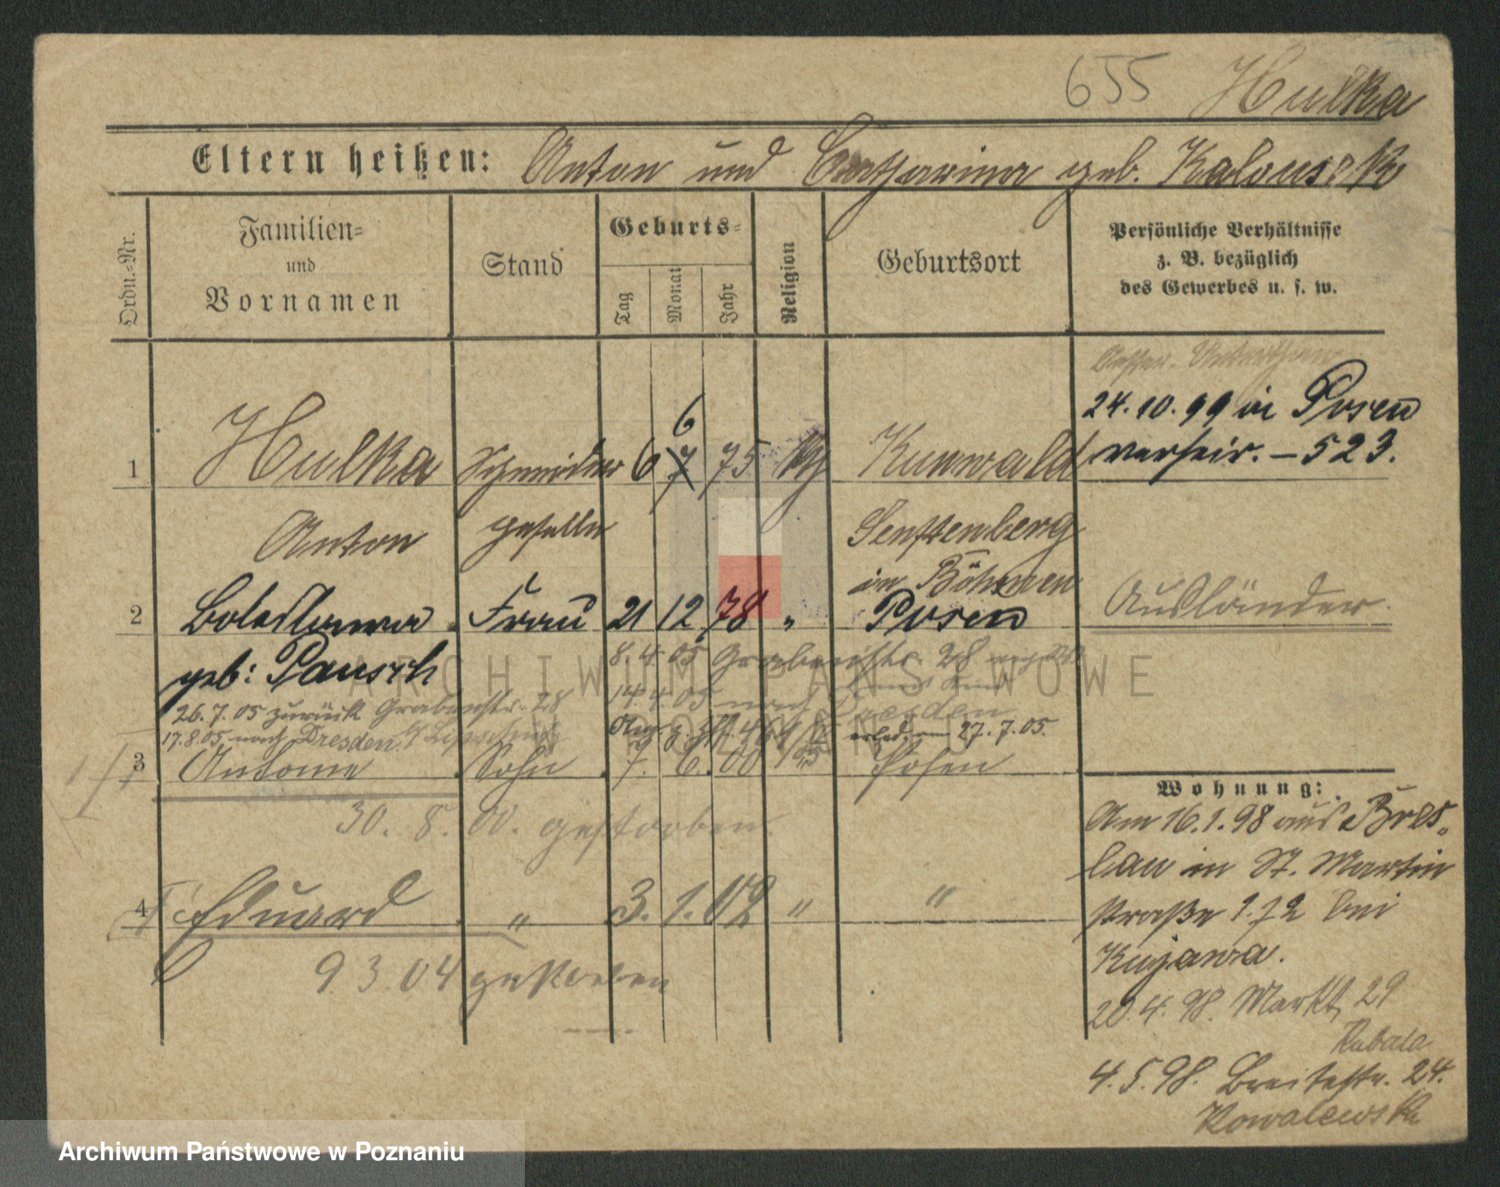 655 Hulka
Eltern heißen: Anton und Catharina geb. Kalousek
Ordn.-Nr.
Familien-
und
Vornamen
Stand
Geburts-
Tag
Monat
Jahr
Religion
Geburtsort
Persönliche Verhältnisse
z. B. bezüglich
des Gewerbes u. s. w.
24.10.99 in Posen
verheir. – 523.
6
1 Hulka Schneider 6 7 75 Kunwald
Anton geselle Senftenberg
in Böhmen
Ausländer.
2 Boleslawa Frau 21 12 78 " Posen
geb: Pausch
8.4.05 Grabenstr. 28
14.4.05 nach Dresden
26.7.05 zurück Grabenstr. 28
17.8.05 nach Dresden
27.7.05.
3 Antonie Sohn 7. 6. 00 Posen
30. 8. 00. gestorben.
4 Eduard " 3. 1. 02 " "
9.3.04 gestorben
Wohnung:
Am 16.1.98 aus Bres-
lau in St. Martin
straße 172 bei
Kujawa.
20.4.98. Markt 29
Rabala
4.5.98. Breitestr. 24.
Kowalewski
ARCHIWUM PAŃSTWOWE
W POZNANIU
Archiwum Państwowe w Poznaniu